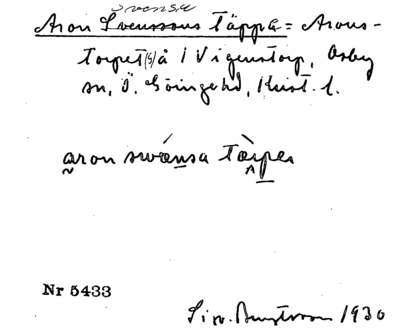 svensa
Aron Svenssons Täppa = Arons-
torpet(s) å 1 Vigenstorp, Osby
sn, Ö. Göingehd, Krist. l.
aron swænsa tæpe
Nr 5433
1930